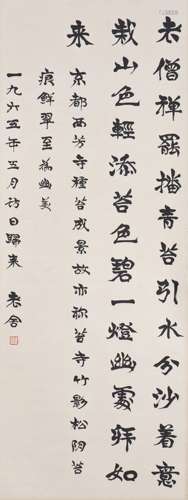 老僧禪罷掃青苔引水分沙着意
栽山色輕添苔色碧一燈幽處拜如
来
京都西芳寺種苔成景故亦称苔寺竹影松阴苔
痕鮮翠至為幽美
一九六五年五月訪日歸来 老舍